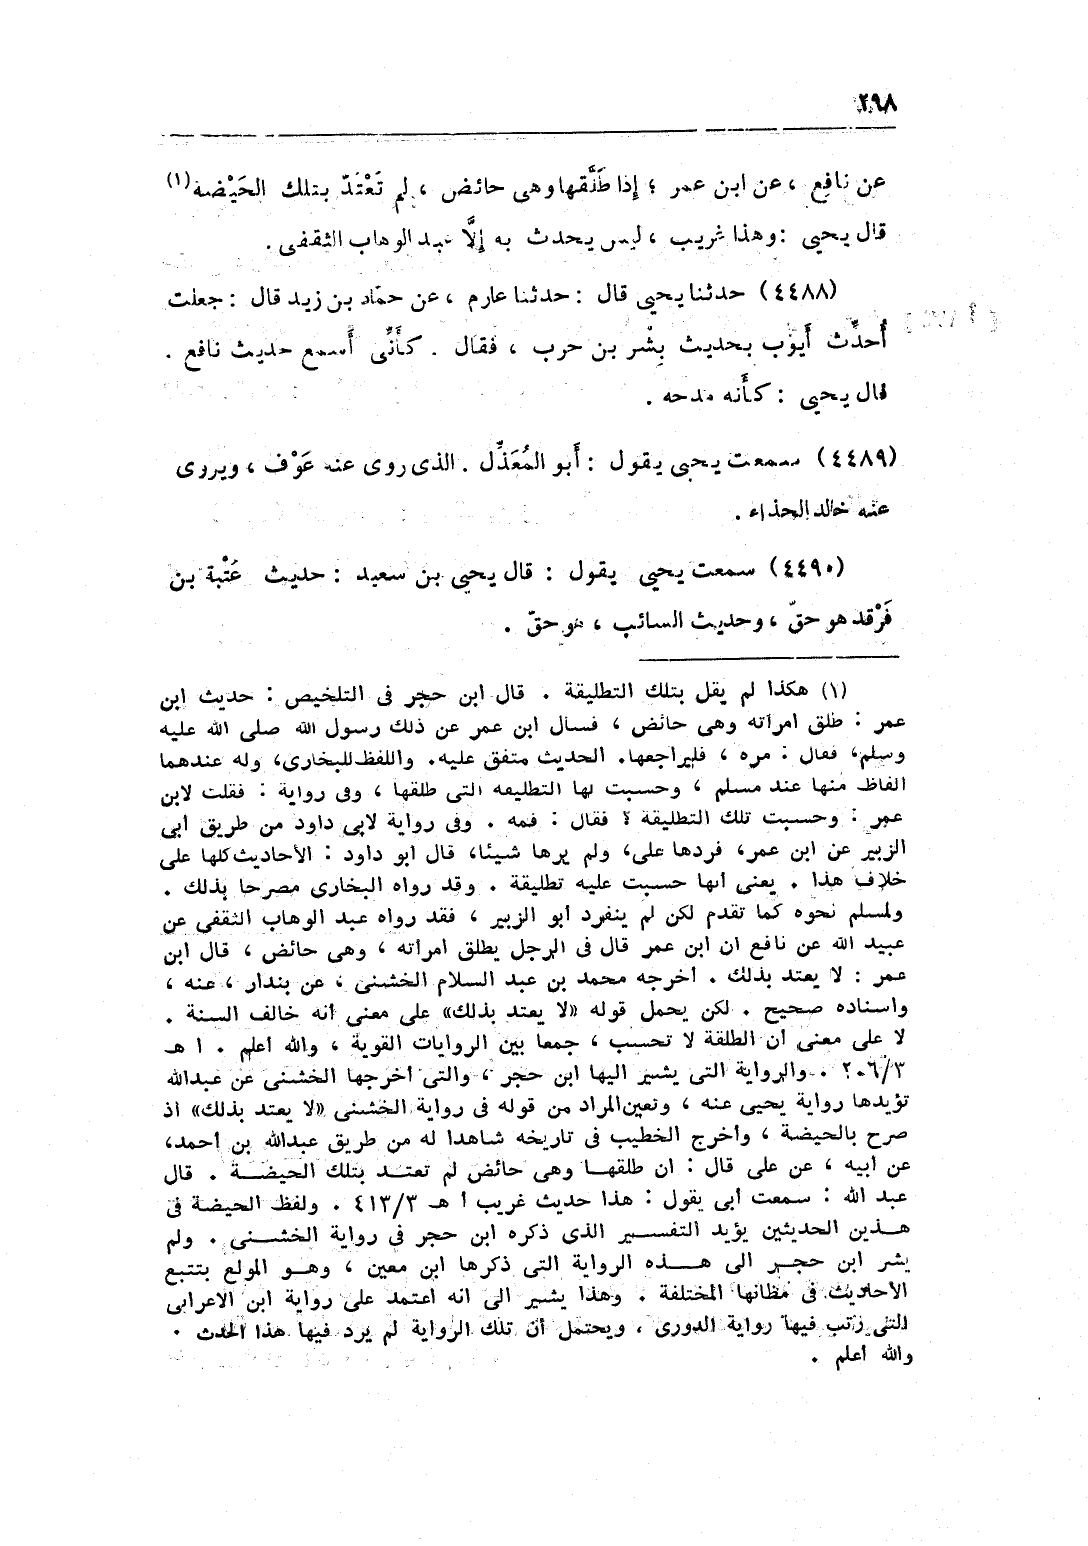 ٢٩٨
عن نافع ، عن ابن عمر ؛ إذا طَلَّقها وهى حائض ، لم تَعْتَدّ بتلك الحَيْضة (١)
قال يحيى : وهذا غريب ، ليس يحدث به إلَّا عبد الوهاب الثقفى .
(٤٤٨٨) حدثنا يحيى قال : حدثنا عارم ، عن حمّاد بن زيد قال : جعلت
أُحدِّث أَيوّب بحديث بِشْر بن حرب ، فقال . كأَنِّى أَسمع حديث نافع .
قال يحيى : كأَنه مدحه .
(٤٤٨٩) سمعت يحيى يقول : أَبو المُعَذِّل . الذى روى عنه عَوْف ، ويروى
عنه خالد الحذاء .
(٤٤٩٠) سمعت يحيى يقول : قال يحيى بن سعيد : حديث عُتْبة بن
فَرْقد هو حقّ ، وحديث السائب ، هو حقّ .
(١) هكذا لم يقل بتلك التطليقة . قال ابن حجر فى التلخيص : حديث ابن
عمر : طلق امراته وهى حائض ، فسال ابن عمر عن ذلك رسول الله صلى الله عليه
وسلم، فقال : مره ، فليراجعها. الحديث متفق عليه. واللفظ للبخارى، وله عندهما
الفاظ منها عند مسلم ، وحسبت لها التطليقه التى طلقها ، وفى رواية : فقلت لابن
عمر : وحسبت تلك التطليقة ؟ فقال : فمه . وفى رواية لابى داود من طريق أبى
الزبير عن ابن عمر، فردها على، ولم يرها شيئا، قال أبو داود : الأحاديث كلها على
خلاف هذا . يعنى أنها حسبت عليه تطليقة . وقد رواه البخارى مصرحا بذلك .
ولمسلم نحوه كما تقدم لكن لم ينفرد أبو الزبير ، فقد رواه عبد الوهاب الثقفى عن
عبيد الله عن نافع ان ابن عمر قال فى الرجل يطلق امراته ، وهى حائض ، قال ابن
عمر : لا يعتد بذلك . أخرجه محمد بن عبد السلام الخشنى ، عن بندار ، عنه ،
واسناده صحيح . لكن يحمل قوله «لا يعتد بذلك» على معنى أنه خالف السنة .
لا على معنى أن الطلقة لا تحسب ، جمعا بين الروايات القوية ، والله أعلم . ا هـ
٢٠٦/٣ . والرواية التى يشير اليها ابن حجر ، والتى أخرجها الخشنى عن عبدالله
تؤيدها رواية يحيى عنه ، وتعين المراد من قوله فى رواية الخشنى «لا يعتد بذلك» اذ
صرح بالحيضة ، وأخرج الخطيب فى تاريخه شاهدا له من طريق عبدالله بن أحمد،
عن أبيه ، عن على قال : ان طلقهـا وهى حائض لم تعتـد بتلك الحيضـة . قال
عبد الله : سمعت أبى يقول : هذا حديث غريب أ هـ ٤١٣/٣ . ولفظ الحيضة فى
هـذين الحديثين يؤيد التفسـير الذى ذكره ابن حجر فى رواية الخشـنى . ولم
يشر ابن حجـر الى هـذه الرواية التى ذكرها ابن معين ، وهـو المولع بتتبع
الأحاديث فى مظانها المختلفة . وهذا يشير الى انه اعتمد على رواية ابن الاعرابى
التى رتب فيها رواية الدورى ، ويحتمل أن تلك الرواية لم يرد فيها هذا الحدث .
والله أعلم .